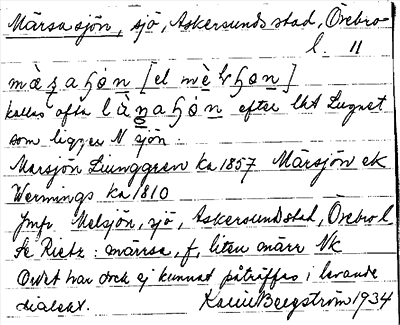 Märsasjön, sjö, Askersunds stad, Örebro
l. 11
kallas ofta efter lht Lugnet
som ligger N sjön.
Marsjön Ljunggren ka 1857 Märsjön ek
Wermings ka 1810
Jmfr Melsjön, sjö, Askersunds stad, Örebro l
Se Rietz: märrsa, f, liten märr Nk
Ordet har dock ej kunnat påträffas i levande
dialekt. Karin Bergström 1934